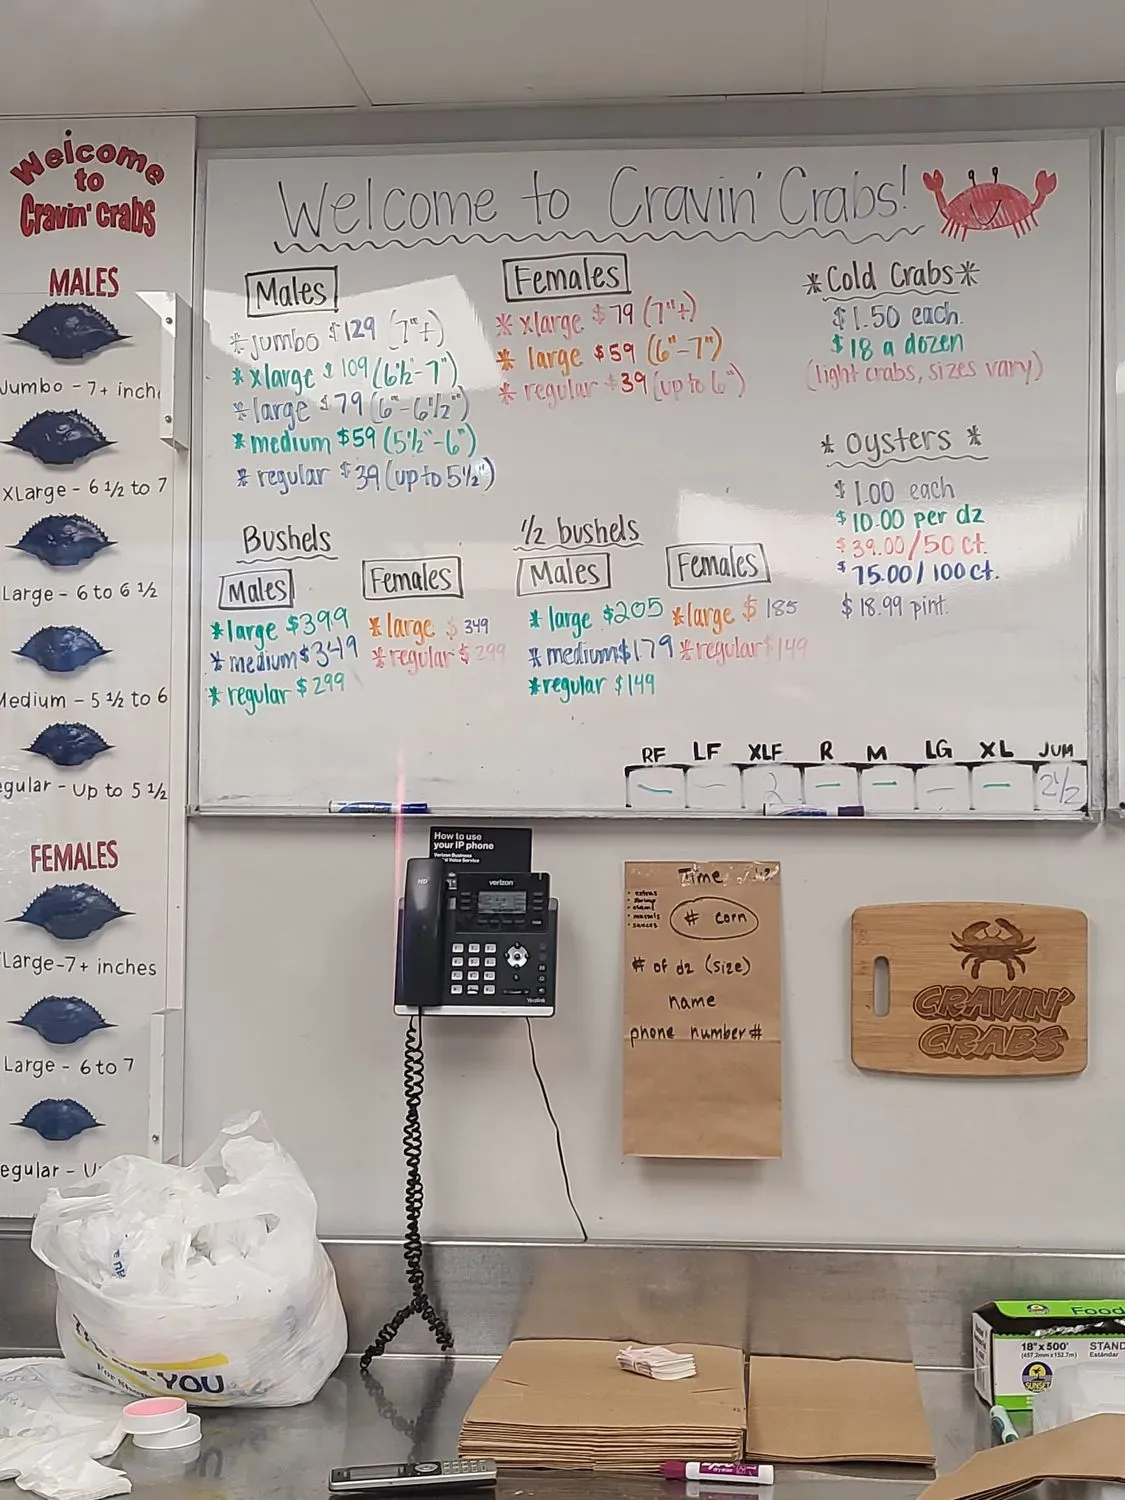 Welcome
to
Cravin' Crabs
MALES
Jumbo - 7+ inch
XLarge - 6 1/2 to 7
Large - 6 to 6 1/2
Medium - 5 1/2 to 6
egular - Up to 5 1/2
FEMALES
Large-7+ inches
Large - 6 to 7
egular - U
Welcome to Cravin' Crabs!
Males
*jumbo $129 (7"+)
*xlarge $109 (6½-7")
*large $79 (6"-6½")
*medium $59 (5½"-6")
*regular $39 (up to 5½")
Females
*xlarge $79 (7"+)
*large $59 (6"-7")
*regular $39 (up to 6")
*Cold Crabs*
$1.50 each.
$18 a dozen
(light crabs, sizes vary)
*oysters*
$1.00 each
$10.00 per dz
$39.00/50 ct.
$75.00/100 ct.
$18.99 pint.
Bushels
Males
*large $399
*medium $349
*regular $299
Females
*large $349
*regular $299
1/2 bushels
Males
*large $205
*medium $179
*regular $149
Females
*large $185
*regular $149
RF LF XLF R M LG XL JUM
— — 2 — — — — 2½
How to use
your IP phone
Verizon Business
verizon
HD
Yealink
Time
• extras
• shrimp
• clams
• mussels
• sauces
# corn
# of dz (size)
name
phone number#
CRAVIN'
CRABS
YOU
Food
18"x500'
(457.2mm x 152.7m)
STAND
Estándar
SUNSET